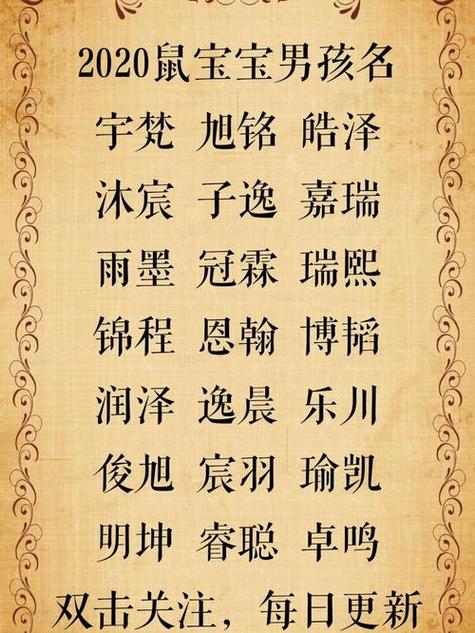 2020鼠宝宝男孩名
宇梵 旭铭 皓泽
沐宸 子逸 嘉瑞
雨墨 冠霖 瑞熙
锦程 恩翰 博韬
润泽 逸晨 乐川
俊旭 宸羽 瑜凯
明坤 睿聪 卓鸣
双击关注，每日更新